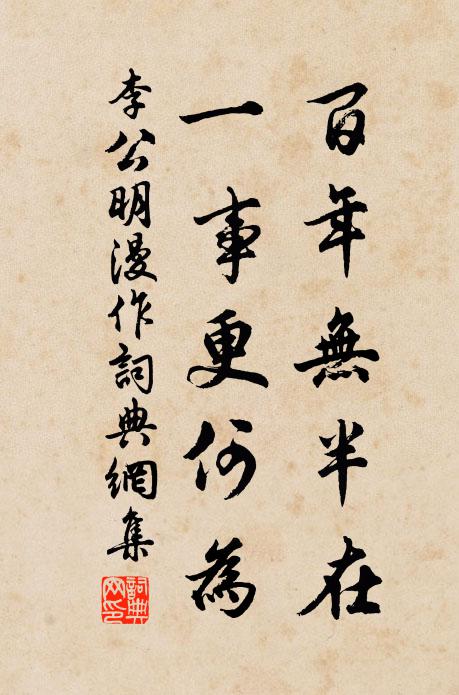 百年無半在
一事更何為
李公明漫作詞典網集
詞典網印